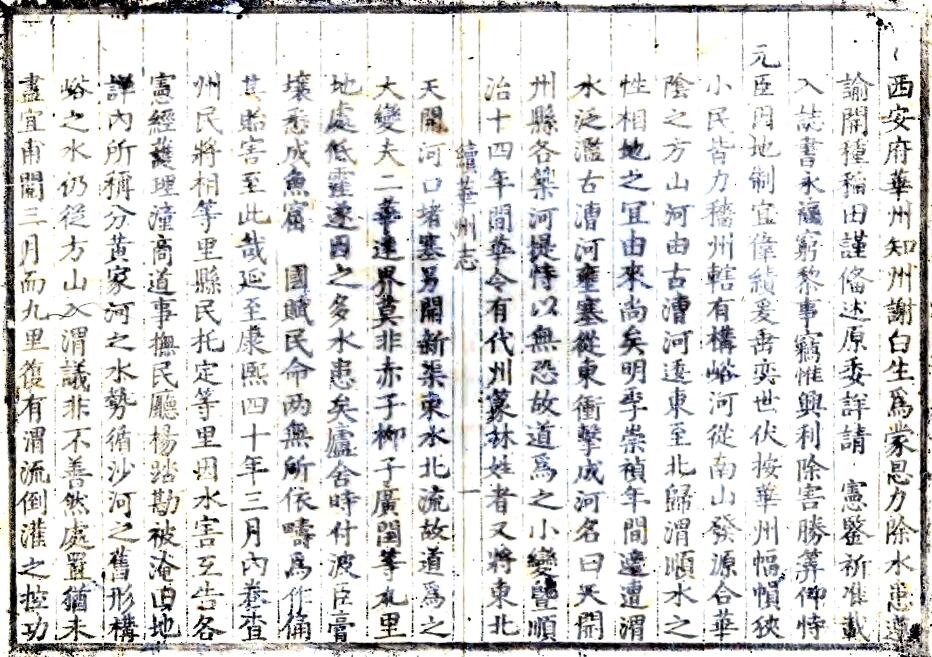 西安府華州知州謝白生為蒙恩力除水患遵
諭開種稻田謹偹述原委詳請 憲鑒祈准載
入誌書永福窮黎事竊惟興利除害勝筭仰恃
元臣因地制宜偉績爰垂奕世伏按華州幅幀狹
小民皆力穡州轄有構峪河從南山發源合華
陰之方山河由古漕河遶東至北歸渭順水之
性相地之冝由來尚矣明季崇禎年間遭渭
水泛濫古漕河壅塞從東衝擊成河名曰天開
州縣各築河堤恃以無恐故道為之小變曁順
治十四年間華令有代州篆林姓者又將東北
續華州志 一
天開河口堵塞另開新渠東水北流故道為之
大變夫二華連界莫非赤子柳子廣闊等九里
地處低窪遂因之多水患矣廬舍時付波臣膏
壤悉成魚窟 國賦民命两無所依疇為作俑
其貽害至此哉延至康熙四十年三月內卷查
州民將相等里縣民托定等里因水害互告各
憲經護理潼商道事撫民廳楊踏勘被淹田地
詳內所稱分黃家河之水勢循沙河之舊形構
峪之水仍從方山入渭議非不善然處置猶未
盡宜甫閱三月而九里復有渭流倒灌之控功